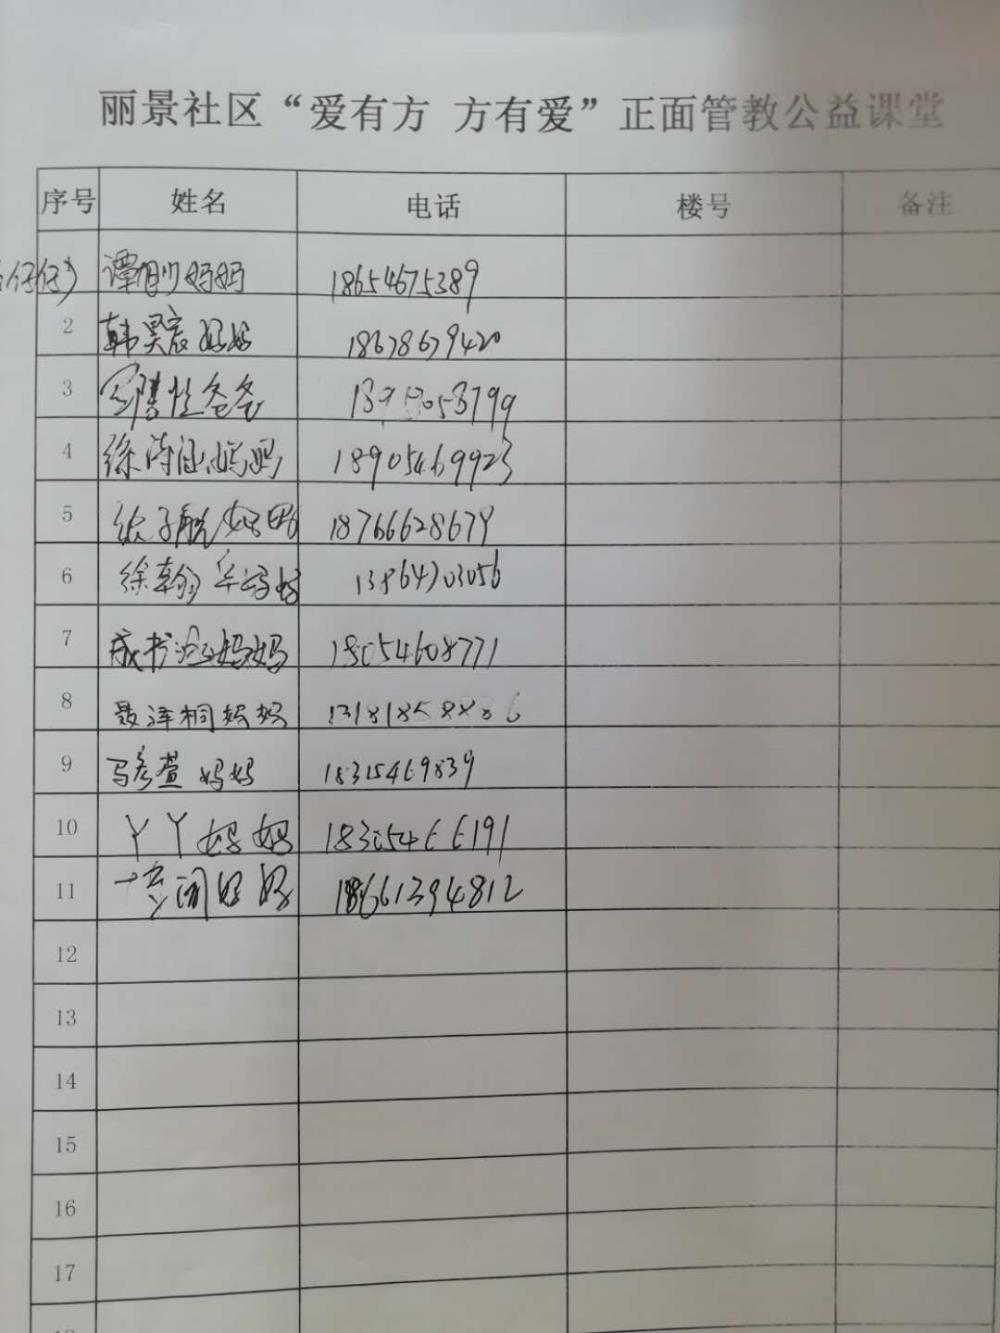 丽景社区“爱有方 方有爱”正面管教公益课堂
序号 姓名 电话 楼号 备注
仔仔) 谭 妈妈 18654675389
2 韩昊宸妈妈 18678679420
3 爸爸
4 徐诗涵妈妈 18905469923
5 张子航妈妈 18766628679
6 徐翰 妈妈 13864703056
7 成书 妈妈 18054608771
8 聂泽桐妈妈 13181858886
9 马彦萱 妈妈 18315469839
10 丫丫妈妈 18305466191
11 妈妈 18661394812
12
13
14
15
16
17